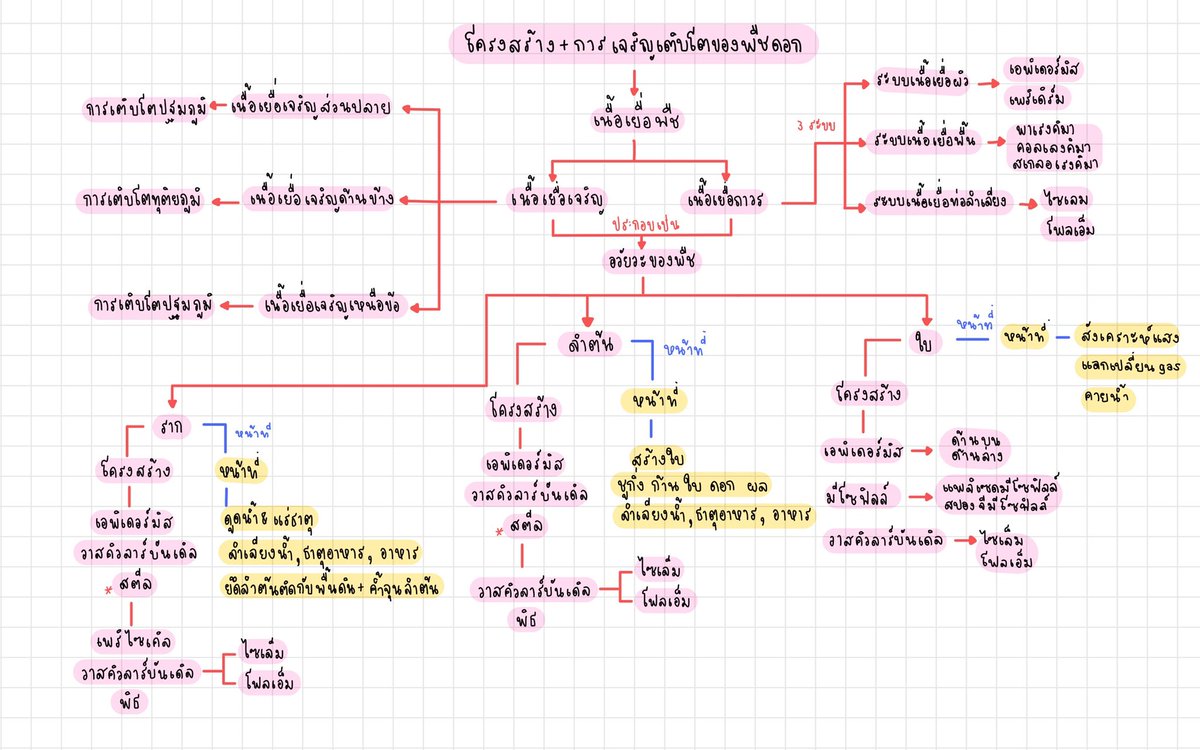 โครงสร้าง + การเจริญเติบโตของพืชดอก
เนื้อเยื่อพืช
เนื้อเยื่อเจริญ
เนื้อเยื่อถาวร
ประกอบเป็น
อวัยวะของพืช
เนื้อเยื่อเจริญส่วนปลาย
การเติบโตปฐมภูมิ
เนื้อเยื่อเจริญด้านข้าง
การเติบโตทุติยภูมิ
เนื้อเยื่อเจริญเหนือข้อ
การเติบโตปฐมภูมิ
3 ระบบ
ระบบเนื้อเยื่อผิว
เอพิเดอร์มิส
เพริเดิร์ม
ระบบเนื้อเยื่อพื้น
พาเรงคิมา
คอลเลงคิมา
สเกลอเรงคิมา
ระบบเนื้อเยื่อท่อลำเลียง
ไซเลม
โฟลเอ็ม
ราก
หน้าที่
โครงสร้าง
เอพิเดอร์มิส
วาสคิวลาร์บันเดิล
* สตีล
เพริไซเคิล
วาสคิวลาร์บันเดิล
พิธ
ไซเล็ม
โฟลเอ็ม
หน้าที่
ดูดน้ำ & แร่ธาตุ
ลำเลียงน้ำ, ธาตุอาหาร, อาหาร
ยึดลำต้นติดกับพื้นดิน + ค้ำจุนลำต้น
ลำต้น
หน้าที่
โครงสร้าง
เอพิเดอร์มิส
วาสคิวลาร์บันเดิล
* สตีล
วาสคิวลาร์บันเดิล
พิธ
ไซเล็ม
โฟลเอ็ม
หน้าที่
สร้างใบ
ชูกิ่ง ก้าน ใบ ดอก ผล
ลำเลียงน้ำ, ธาตุอาหาร, อาหาร
ใบ
หน้าที่
หน้าที่
สังเคราะห์แสง
แลกเปลี่ยน gas
คายน้ำ
โครงสร้าง
เอพิเดอร์มิส
ด้านบน
ด้านล่าง
มีโซฟิลล์
แพลิเซดมีโซฟิลล์
สปองจีมีโซฟิลล์
วาสคิวลาร์บันเดิล
ไซเล็ม
โฟลเอ็ม